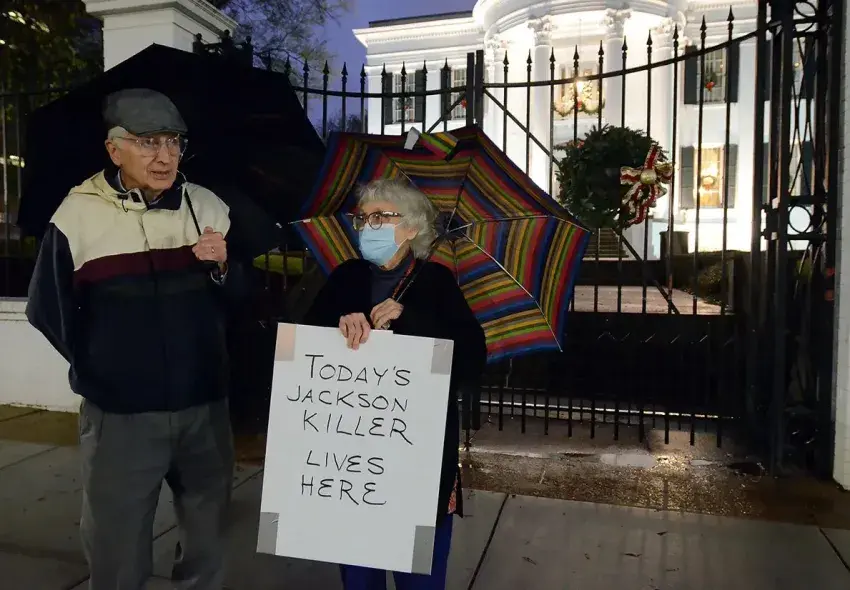 TODAY'S
JACKSON
KILLER
LIVES
HERE